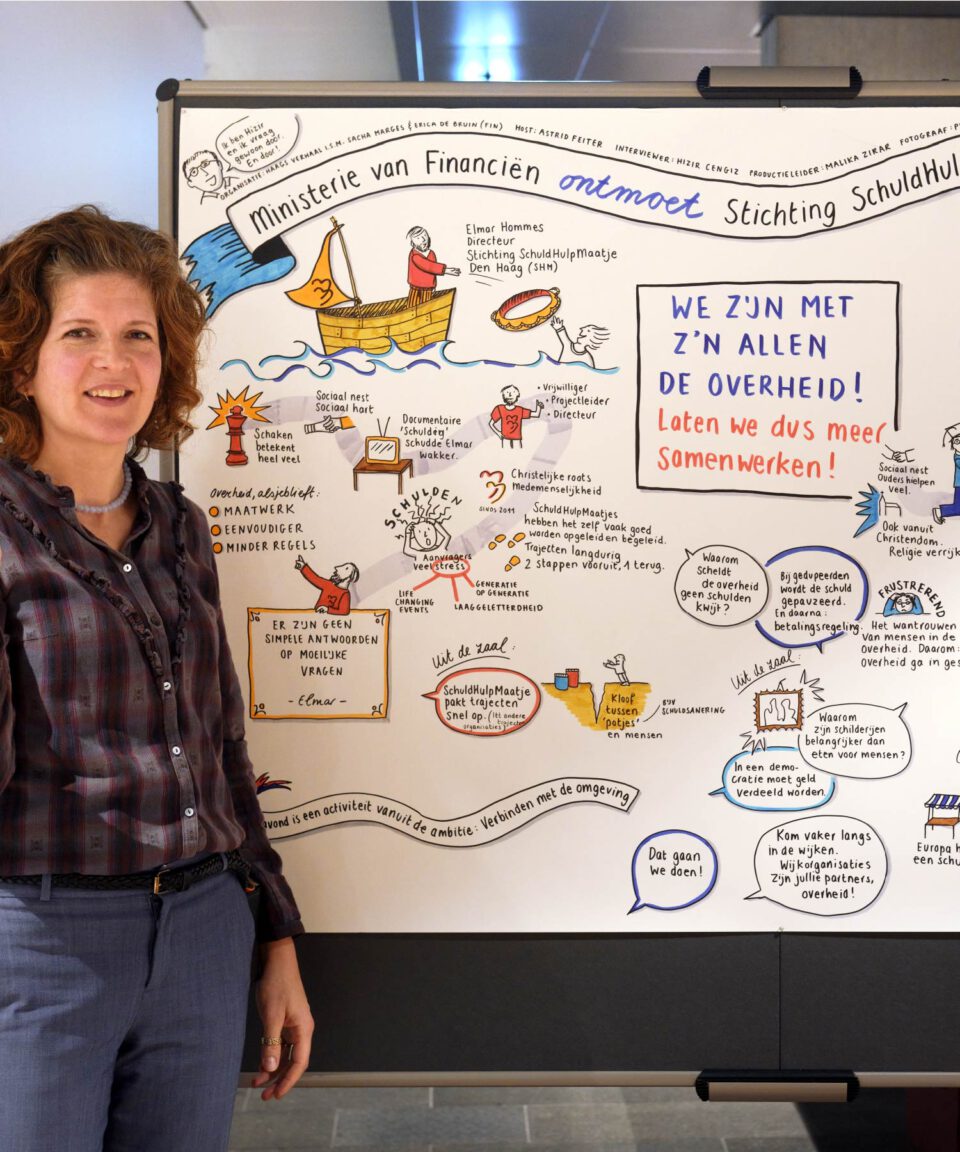 Ik ben Hizir
en ik vraag
gewoon door.
En door!
ORGANISATIE: HAAGS VERHAAL I.S.M. SACHA MARGES & ERICA DE BRUIN (FIN) HOST: ASTRID FEITER INTERVIEWER: HIZIR CENGIZ PRODUCTIELEIDER: MALIKA ZIKAR FOTOGRAAF:
Ministerie van Financiën ontmoet Stichting SchuldHul
Elmar Hommes
Directeur
Stichting SchuldHulpMaatje
Den Haag (SHM)
WE ZIJN MET
Z'N ALLEN
DE OVERHEID!
Laten we dus meer
samenwerken!
Schaken
betekent
heel veel
Sociaal nest
Sociaal hart
Documentaire
'Schulden'
schudde Elmar
wakker.
• Vrijwilliger
• Projectleider
• Directeur
Christelijke roots
medemenselijkheid
SINDS 2011
SchuldHulpMaatjes
hebben het zelf vaak goed
worden opgeleid en begeleid.
Trajecten langdurig
2 stappen vooruit, 1 terug.
Overheid, alsjeblieft:
MAATWERK
EENVOUDIGER
MINDER REGELS
SCHULDEN
Aanvragers
veel stress
LIFE
CHANGING
EVENTS
GENERATIE
OP GENERATIE
LAAGGELETTERDHEID
ER ZIJN GEEN
SIMPELE ANTWOORDEN
OP MOEILIJKE
VRAGEN
- Elmar -
Uit de zaal:
SchuldHulpMaatje
pakt trajecten
snel op. (itt andere
trajecten
organisaties)
Kloof
tussen
'potjes'
en mensen
BIJV
SCHULDSANERING
avond is een activiteit vanuit de ambitie: Verbinden met de omgeving
Sociaal nest
Ouders hielpen
veel.
Ook vanuit
Christendom.
Religie verrijk
Waarom
scheldt
de overheid
geen schulden
kwijt?
Bij gedupeerden
wordt de schuld
gepauzeerd.
En daarna:
betalingsregeling.
FRUSTREREND
Het wantrouwen
van mensen in de
overheid. Daarom:
Overheid ga in ges
Uit de zaal:
Waarom
zijn schilderijen
belangrijker dan
eten voor mensen?
In een demo-
cratie moet geld
verdeeld worden.
Dat gaan
we doen!
Kom vaker langs
in de wijken.
Wijkorganisaties
zijn jullie partners,
overheid!
Europa h
een schu